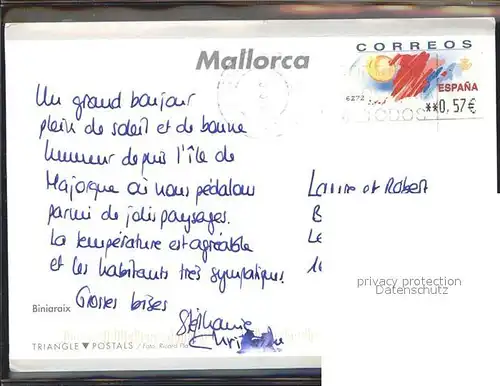 Mallorca
CORREOS
6272
ESPAÑA
**0,57€
Un grand bonjour
plein de soleil et de bonne
humeur depuis l'île de
Majorque où nous pédalons
parmi de jolis paysages.
La température est agréable
et les habitants très sympatiques.
Grosses bises
Stéphanie
Laurre et Robert
B
Le
privacy protection
Datenschutz
Biniaraix
TRIANGLE ▼ POSTALS / Foto: Ricard Pla